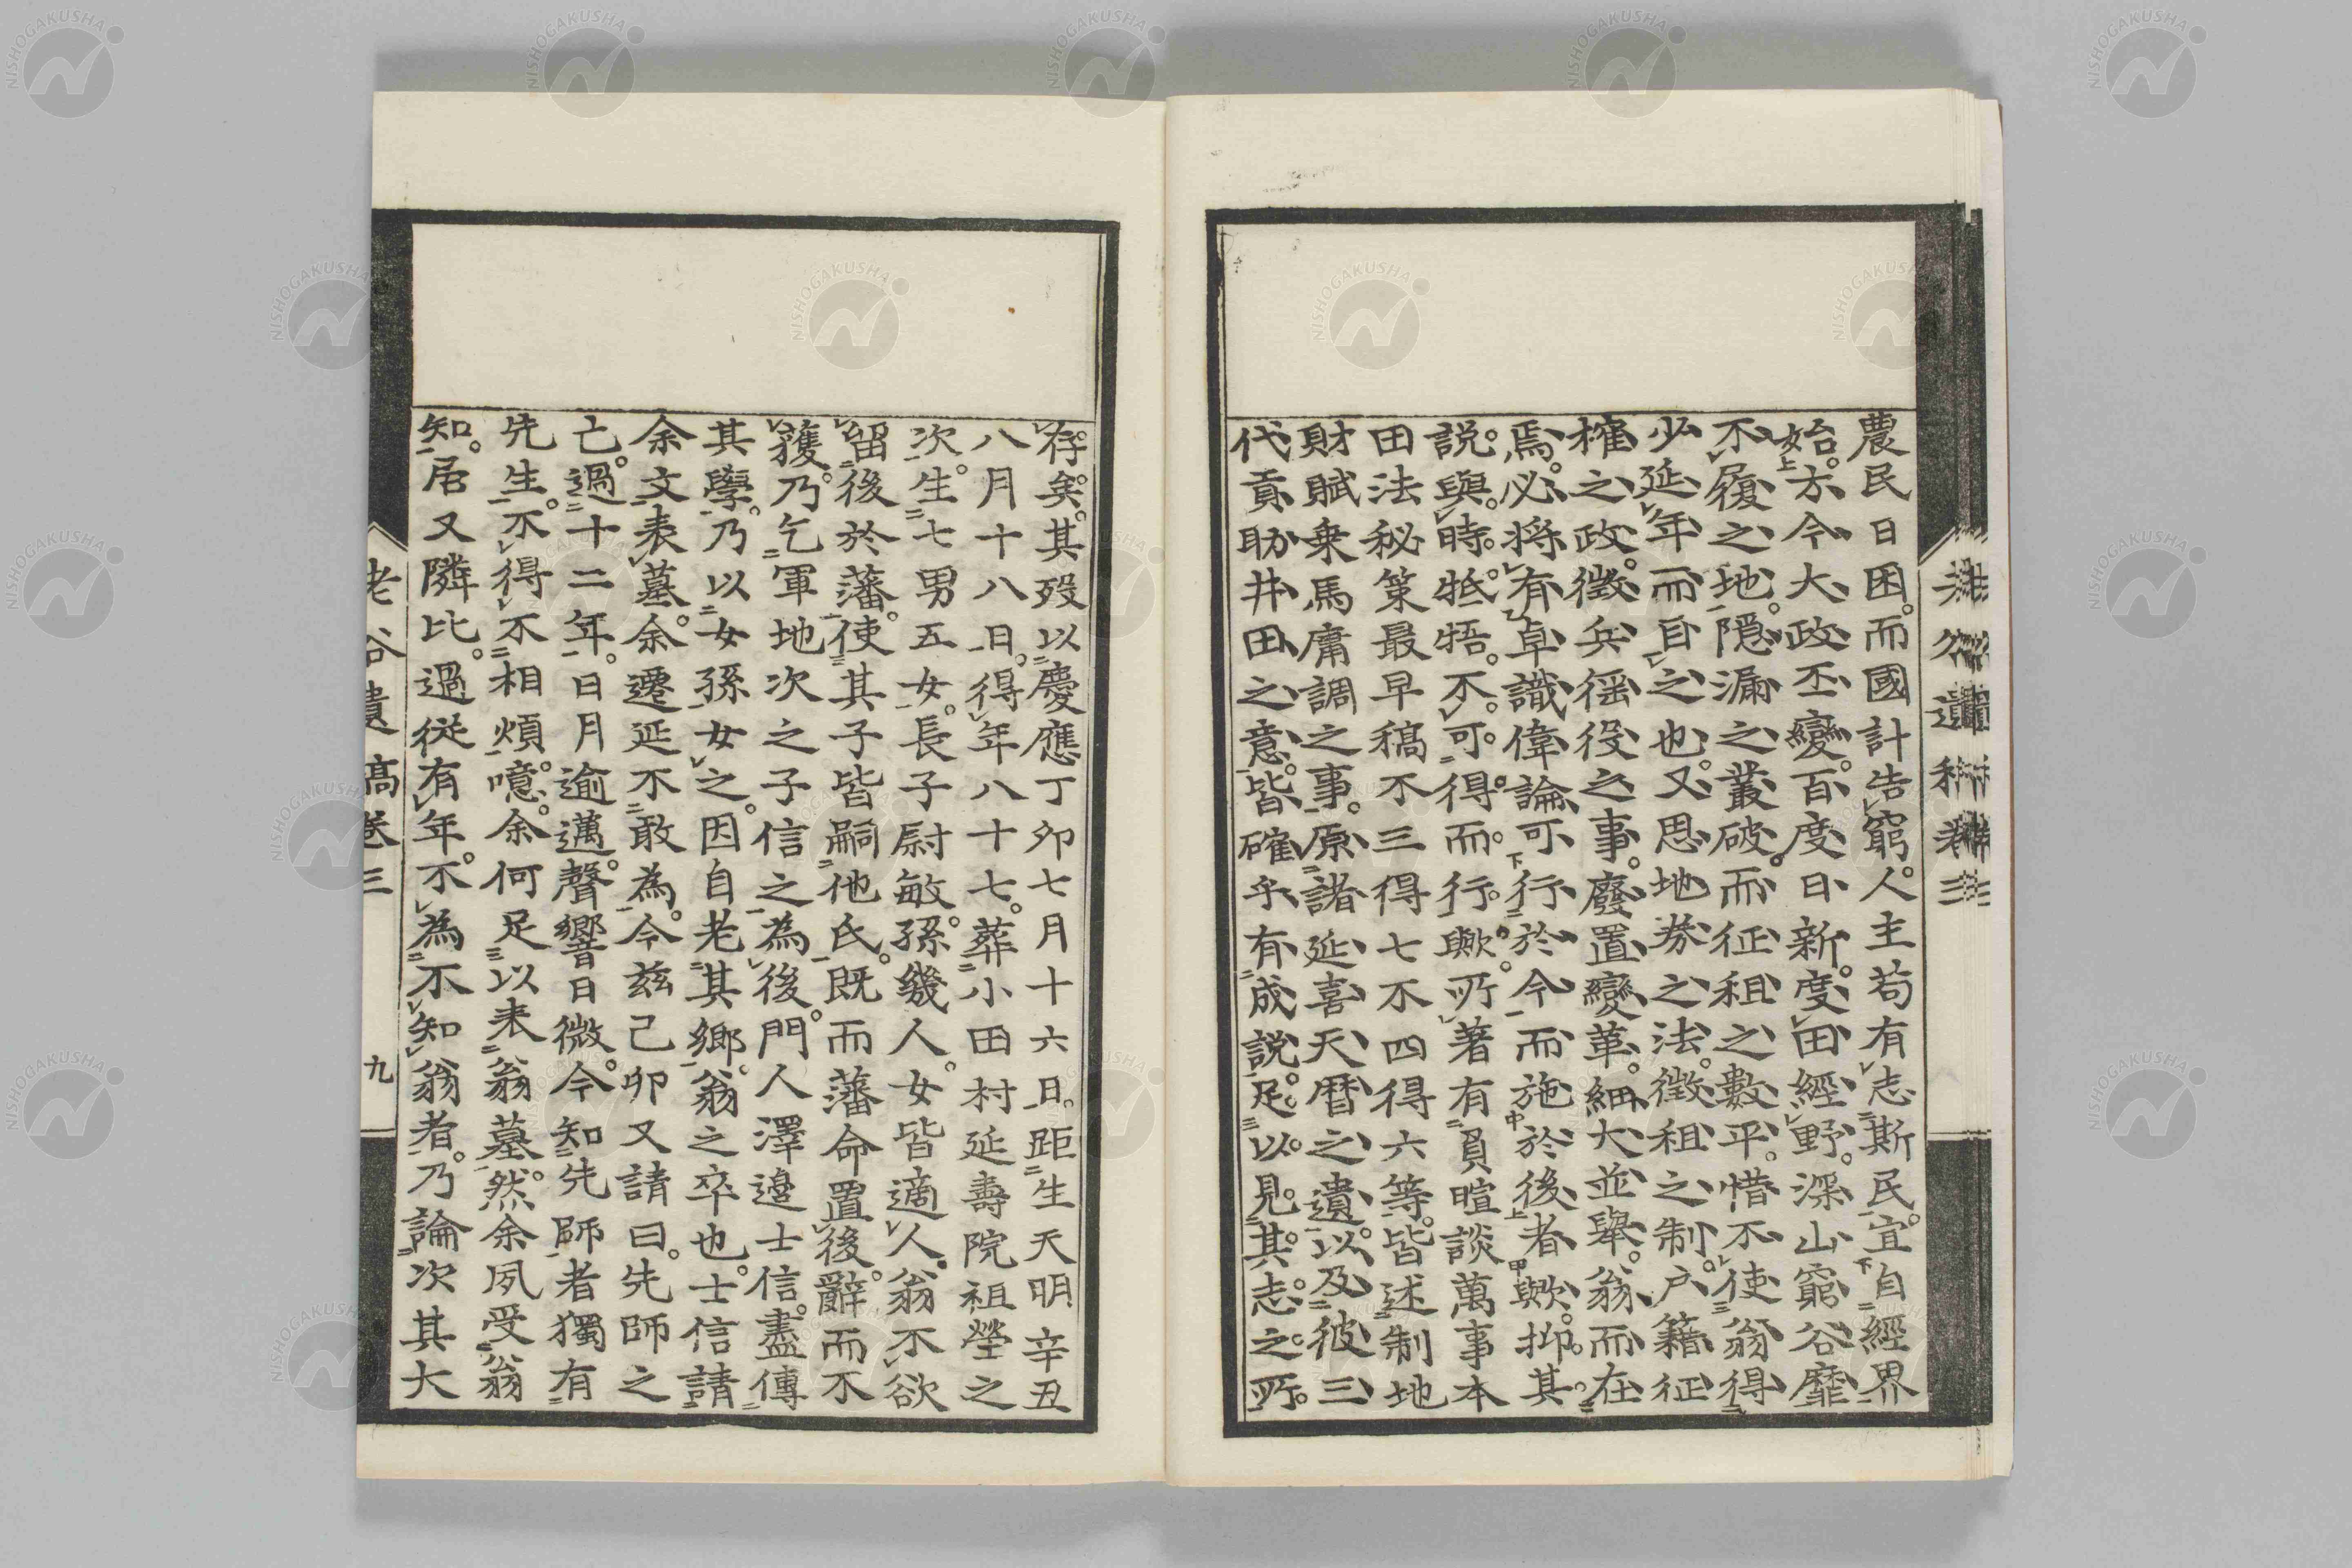 農民日困。而國計告窮。人主苟有志斯民。宜自經界
始。方今大政丕變。百度日新。度田經野。深山窮谷靡
不履之地。隱漏之叢破。而征租之數平。惜不使翁得
少延年而目之也。又思地券之法。徵租之制。戶籍征
榷之政。徵兵徭役之事。廢置變革。細大並舉。翁而在
焉。必將有卓識偉論可行於今而施於後者歟。抑其
說與時牴牾。不可得而行歟。所著有員暄談萬事本
田法秘策最早稿不三得七不四得六等。皆述制地
財賦乘馬庸調之事。原諸延喜天曆之遺。以及彼三
代貢助井田之意。皆確乎有成說。足以見其志之所
存矣。其歿以慶應丁卯七月十六日。距生天明辛丑
八月十八日。得年八十七。葬小田村延壽院祖塋之
次。生七男五女。長子尉敏。孫幾人。女皆適人。翁不欲
留後於藩。使其子皆嗣他氏。既而藩命置後。辭而不
獲。乃乞軍地次之子信之為後。門人澤邉士信。盡傳
其學。乃以女孫女之。因自老其鄉。翁之卒也。士信請
余文表墓。余遷延不敢為。今茲己卯又請曰。先師之
亡。過十二年。日月逾邁。聲響日微。今知先師者獨有
先生。不得不相煩。噫。余何足以表翁墓。然余夙受翁
知。居又隣比。過從有年。不為不知翁者。乃論次其大
老谷遺稿卷三
九